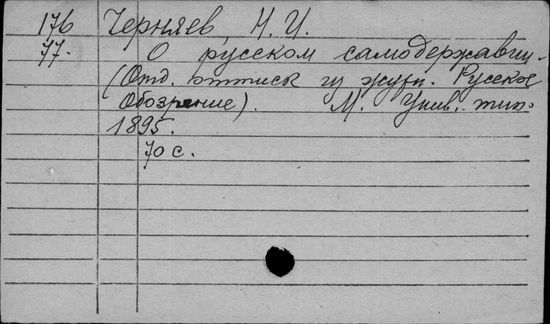 176 Черняев, Н. И.
77. О русском самодержавии.
(Отд. оттиск из журн. Русское
Обозрение). М. Унив. тип.
1895.
70 с.